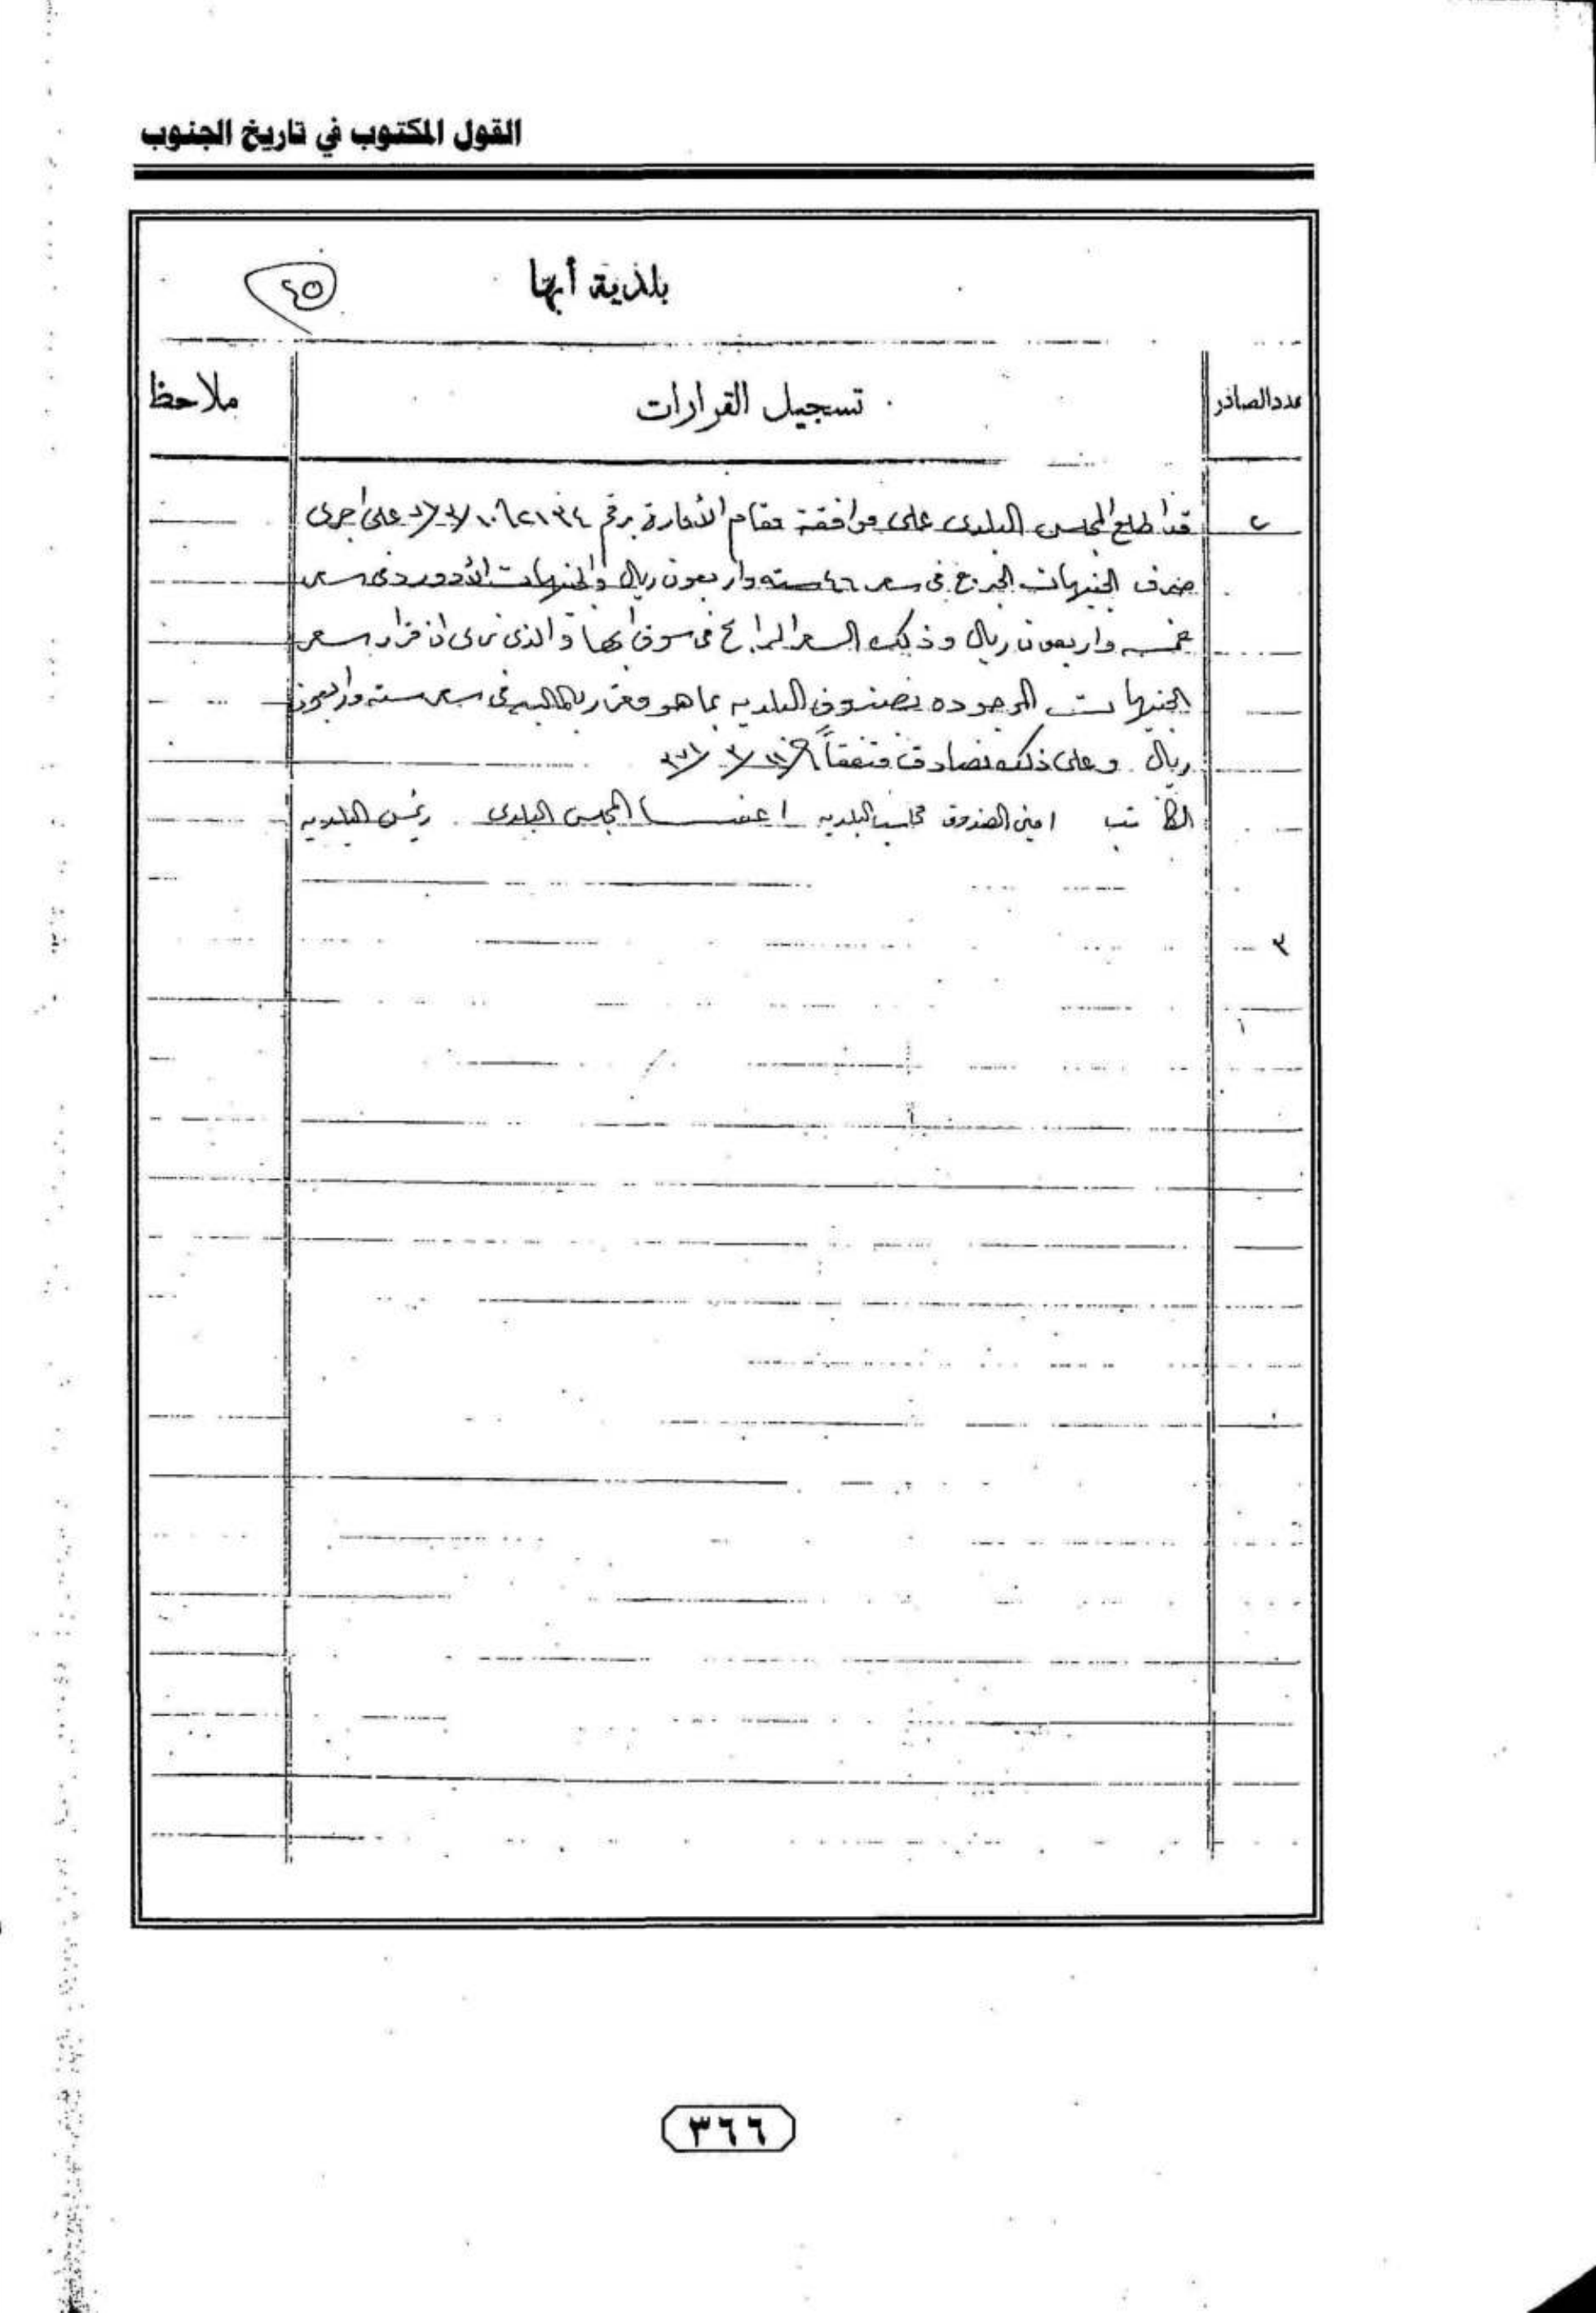 القول المكتوب في تاريخ الجنوب
بلدية أبها
٤٥
عدد الصادر
تسجيل القرارات
ملاحظا
٢
قد اطلع المجلس البلدى على موافقة مقام الأمارة برقم على اجرى
صرف الجنيهات الجرج فى سعر ٤٦ سته واربعون ريال والجنيهات الأدورد فى سعر
خمسه واربعون ريال وذلك السعر الرابح فى سوق ابها والذى نرى ان قرار سعر
الجنيهات الموجوده بصندوق البلديه بما هو مقرر بالماليه فى سعر سته واربعون
ريال وعلى ذلك نصادق متفقاً
الكاتب امين الصندوق محاسب البلديه اعضا المجلس البلدى رئيس البلديه
٣
٣٦٦